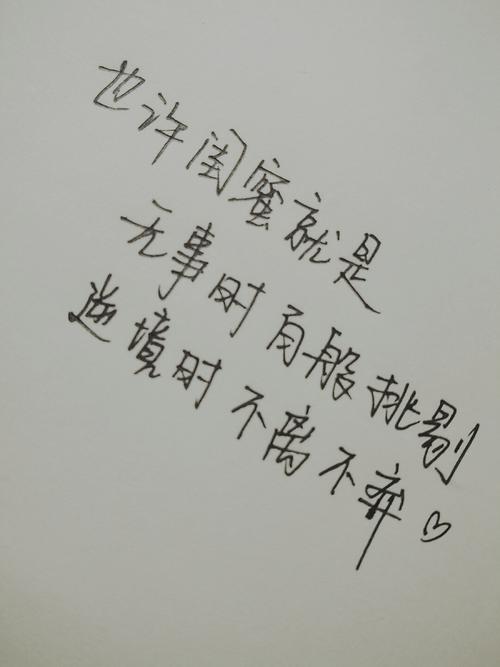 也许闺蜜就是
无事时百般挑剔
逆境时不离不弃♡